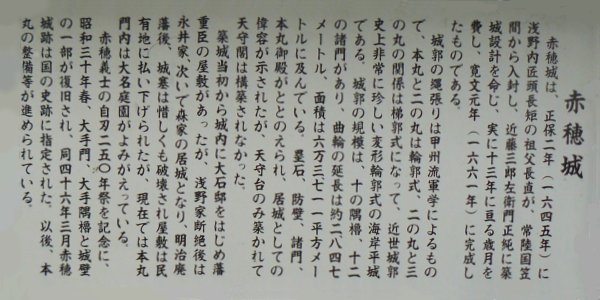 赤穂城
赤穂城は、正保二年（一六四五年）に
浅野内匠頭長矩の祖父長直が、常陸国笠
間から入封し、近藤三郎左衛門正純に築
城設計を命じ、実に十三年に亘る歳月を
費し、寛文元年（一六六一年）に完成し
たものである。
城郭の縄張りは甲州流軍学によるもの
で、本丸と二の丸は輪郭式、二の丸と三
の丸の関係は梯郭式になって、近世城郭
史上非常に珍しい変形輪郭式の海岸平城
である。城郭の規模は、十の隅櫓、十二
の諸門があり、曲輪の延長は約二八四七
メートル、面積は六万三七一一平方メー
トルに及んでいる。塁石、防壁、諸門、
本丸御殿がととのえられ、居城としての
偉容が示されたが、天守台のみ築かれて
天守閣は構築されなかった。
築城当初から城内に大石邸をはじめ藩
重臣の屋敷があったが、浅野家断絶後は
永井家、次いで森家の居城となり、明治廃
藩後、城塁は惜しくも破壊され屋敷は民
有地に払い下げられたが、現在では本丸
門内は大名庭園がよみがえっている。
赤穂義士の自刃二五〇年祭を記念に、
昭和三十年春、大手門、大手隅櫓と城壁
の一部が復旧され、同四十六年三月赤穂
城跡は国の史跡に指定された。以後、本
丸の整備等が進められている。